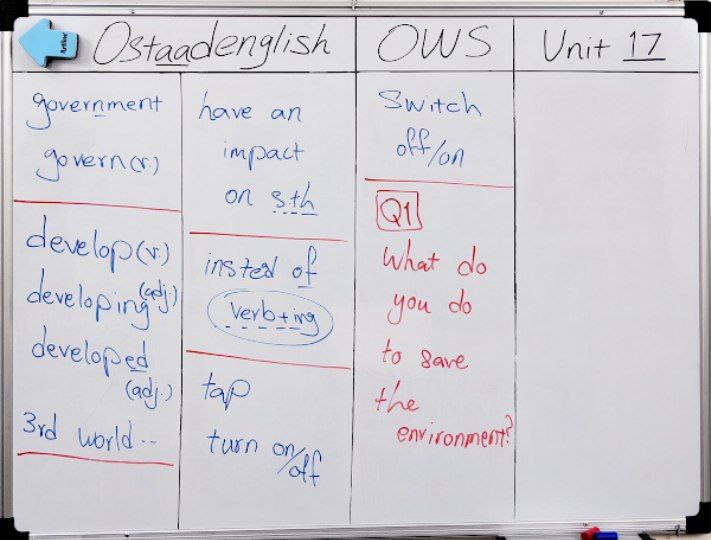 Ostaadenglish
OWS
Unit 17
government
govern(v.)
develop(v.)
developing (adj)
developed
(adj.)
3rd world..
have an
impact
on s.th
insted of
verb+ing
tap
turn on/off
Switch
off/on
Q1
What do
you do
to save
the
environment?